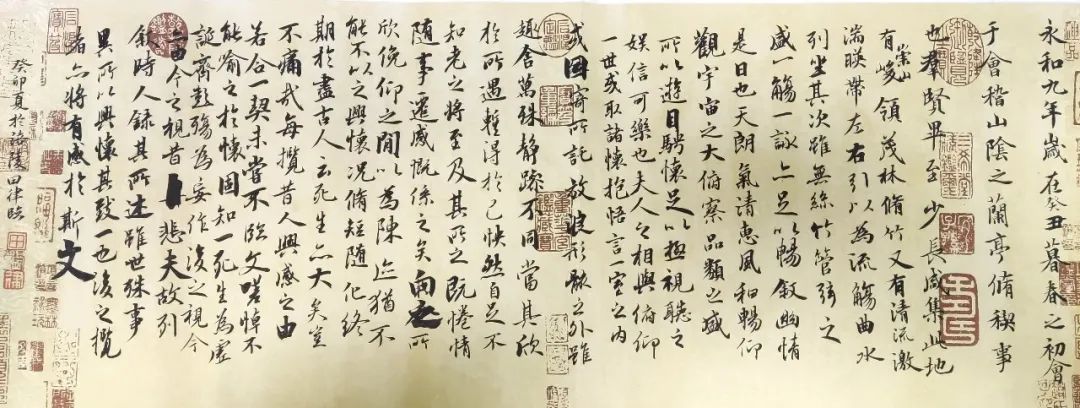 永和九年歲在癸丑暮春之初會
于會稽山陰之蘭亭脩稧事
也羣賢畢至少長咸集此地
有崇山峻領茂林脩竹又有清流激
湍暎帶左右引以為流觴曲水
列坐其次雖無絲竹管弦之
盛一觴一詠亦足以暢敘幽情
是日也天朗氣清惠風和暢仰
觀宇宙之大俯察品類之盛
所以遊目騁懷足以極視聽之
娛信可樂也夫人之相與俯仰
一世或取諸懷抱悟言一室之內
或因寄所託放浪形骸之外雖
趣舍萬殊靜躁不同當其欣
於所遇蹔得於己快然自足不
知老之將至及其所之既惓情
隨事遷感慨係之矣向之所
欣俛仰之閒以為陳迹猶不
能不以之興懷況脩短隨化終
期於盡古人云死生亦大矣豈
不痛哉每攬昔人興感之由
若合一契未嘗不臨文嗟悼不
能喻之於懷固知一死生為虛
誕齊彭殤為妄作後之視今
亦由今之視昔悲夫故列
敘時人錄其所述雖世殊事
異所以興懷其致一也後之攬
者亦將有感於斯文
癸卯夏於涪陵田律臨